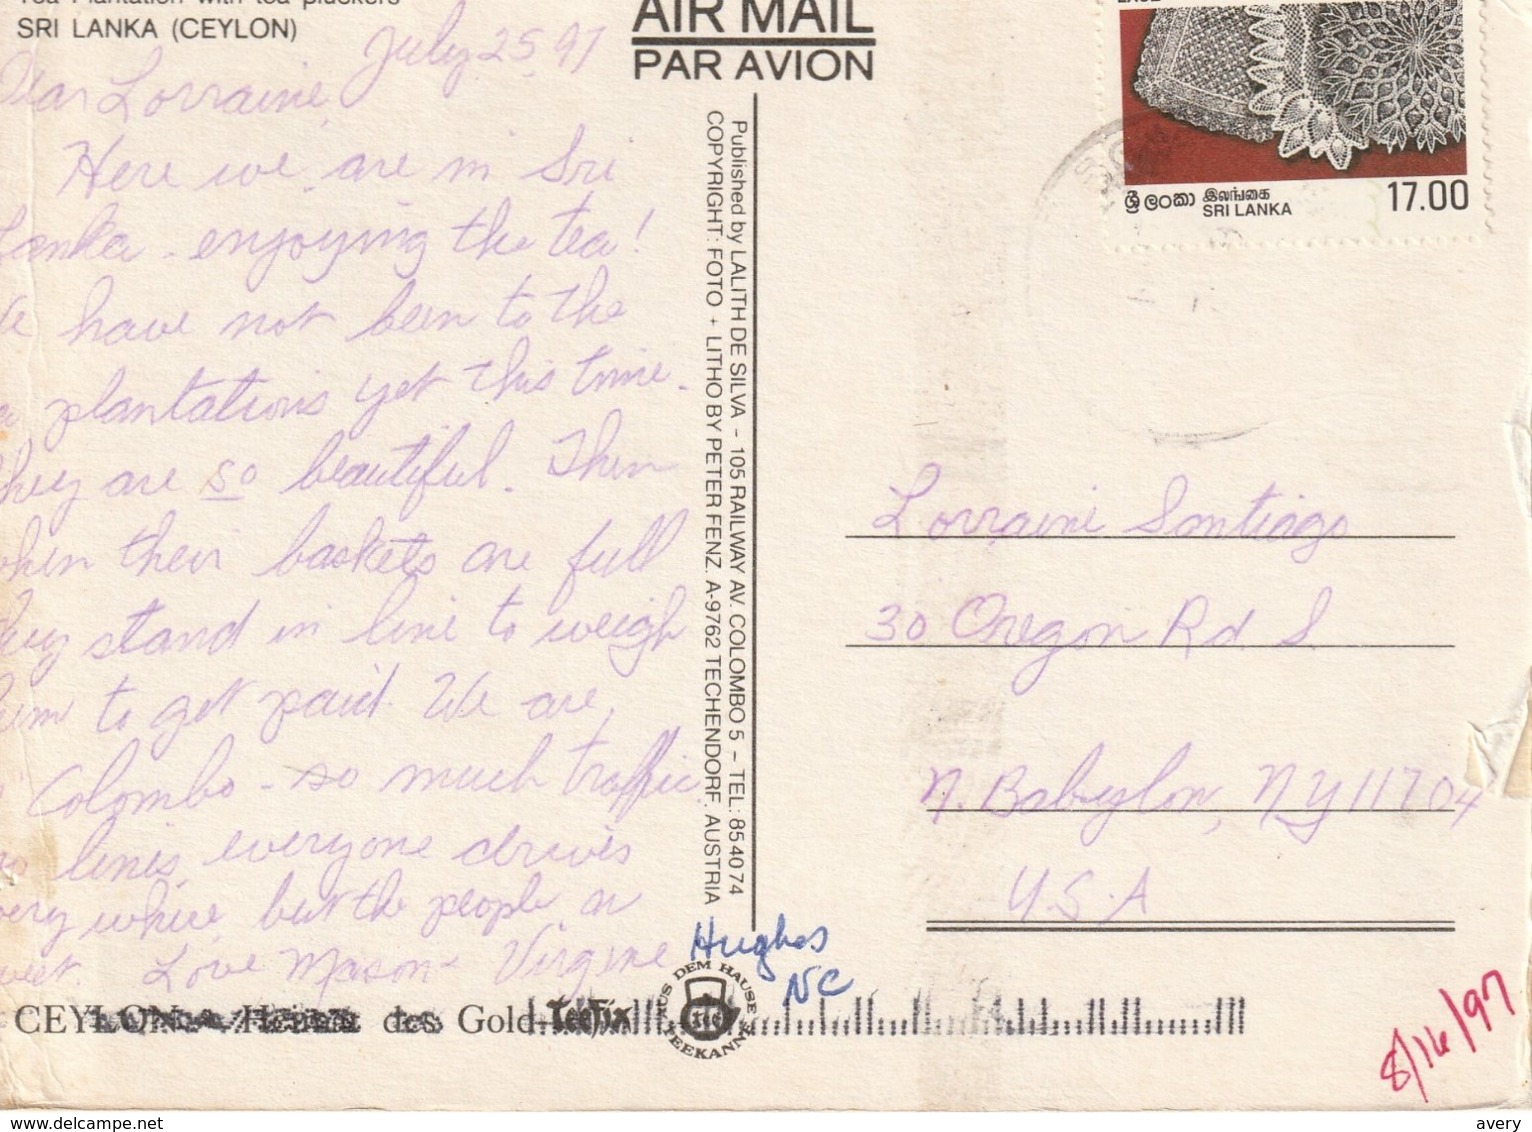 Tea Plantation with tea pluckers
SRI LANKA (CEYLON)
AIR MAIL
PAR AVION
LACE
ශ්‍රී ලංකා இலங்கை
SRI LANKA
17.00
July 25, 97
Dear Lorraine,
Here we are in Sri
Lanka - enjoying the tea!
We have not been to the
plantations yet this time.
They are so beautiful. Then
when their baskets are full
they stand in line to weigh
them to get paid. We are
Colombo - so much traffic
no lines, everyone drives
every where but the people are
sweet. Love Mason - Virginie
Hughes
NC
Published by LALITH DE SILVA - 105 RAILWAY AV. COLOMBO 5 - TEL: 854074
COPYRIGHT: FOTO + LITHO BY PETER FENZ. A-9762 TECHENDORF. AUSTRIA
Lorraine Santiago
30 Oregon Rd S
N. Babylon, NY 11704
U.S.A
CEYLON Heimat des Gold- TeeFix
AUS DEM HAUSE
TEEKANNE
8/16/97
www.delcampe.net
avery